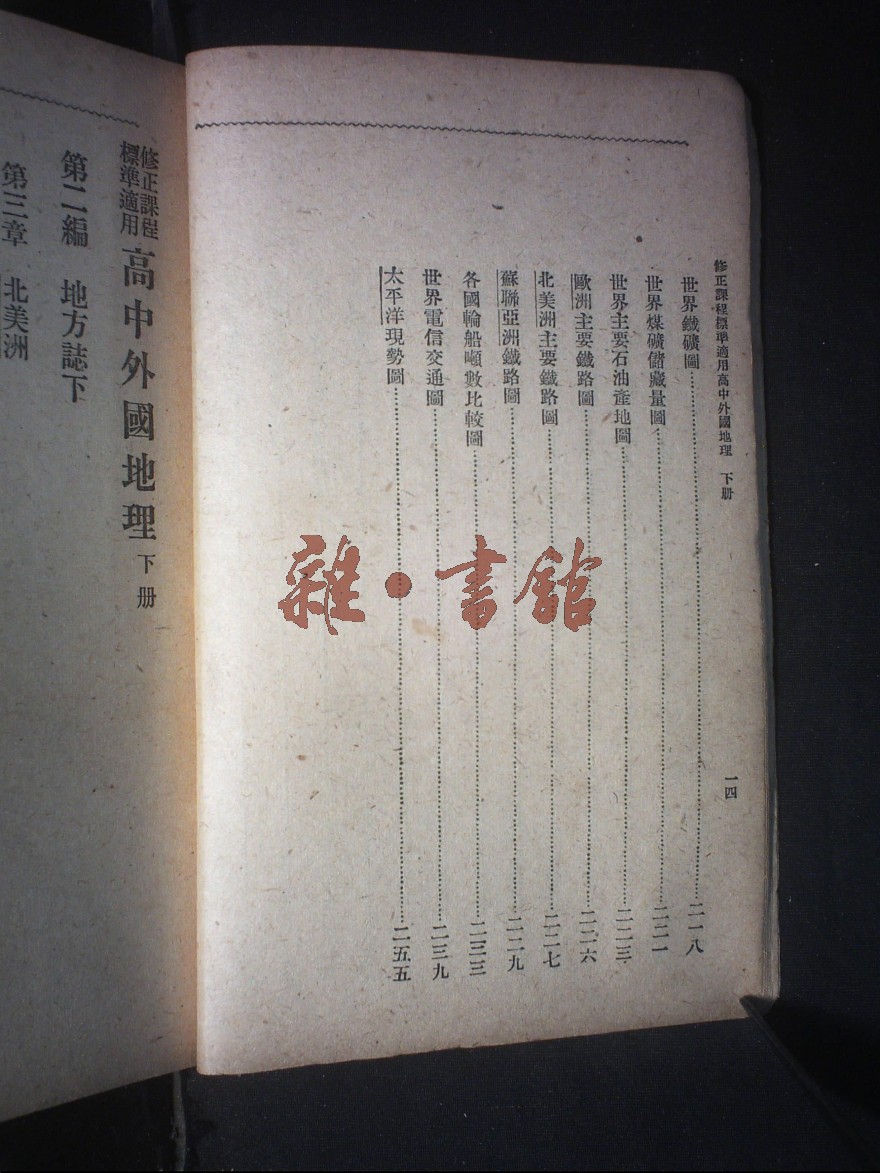 修正課程標準適用高中外國地理　下册
一四
世界鐵礦圖……二一八
世界煤礦儲藏量圖……二二一
世界主要石油產地圖……二二三
歐洲主要鐵路圖……二二六
北美洲主要鐵路圖……二二七
蘇聯亞洲鐵路圖……二二九
各國輪船噸數比較圖……二三三
世界電信交通圖……二三九
太平洋現勢圖……二五五
修正課程
標準適用
高中外國地理 下册
第二編　地方誌下
第三章　北美洲
雜·書館